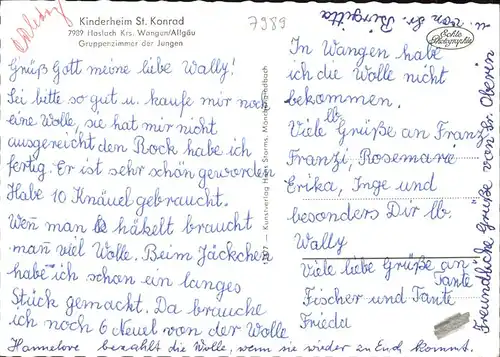 erledigt
Kinderheim St. Konrad
7989 Haslach Krs. Wangen/Allgäu
Gruppenzimmer der Jungen
7989
Echte Photographie
Grüß Gott meine liebe Wally!
Sei bitte so gut u. kaufe mir noch
eine Wolle, sie hat mir nicht
ausgereicht den Rock habe ich
fertig. Er ist sehr schön geworden
Habe 10 Knäuel gebraucht.
Wen̄ man häkelt braucht
man̄ viel Wolle. Beim Jäckchen
habe ich schon ein langes
Stück gemacht. Da brauche
ich noch 6 Neuel von der Wolle
Hannelore bezahlt die Wolle, wenn sie wieder zu Euch kommt.
Kunstverlag Hans Storms, Mönchengladbach
In Wangen habe
ich die Wolle nicht
bekommen.
Viele lb. Grüße an Franz
Franzi, Rosemarie
Erika, Inge und
besonders Dir lb.
Wally
Viele liebe Grüße an
Tante
Fischer und Tante
Frieda
Freundliche Grüße von Sr. Oberin
u. von Sr. Birgitta